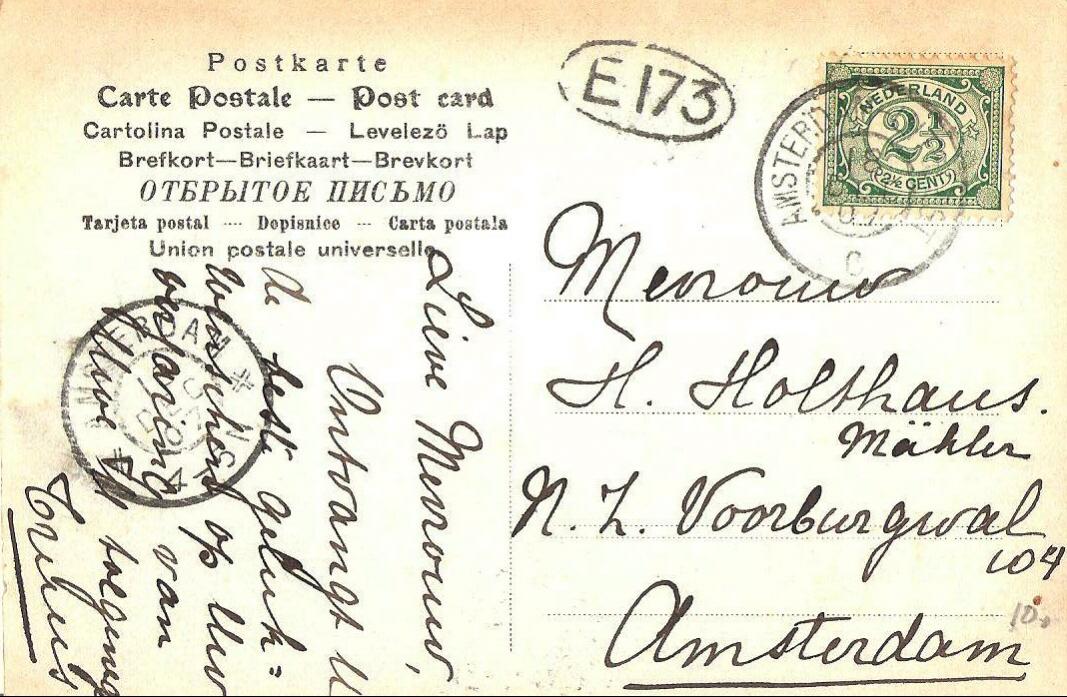 Postkarte
Carte Postale — Post card
Cartolina Postale — Levelező Lap
Brefkort—Briefkaart—Brevkort
ОТБРЫТОЕ ПИСЬМО
Tarjeta postal — Dopisnice — Carta postala
Union postale universelle
E 173
NEDERLAND
2½
2½ CENT
AMSTERD
C
Mevrouw
H. Holthaus.
Mähler
N. Z. Voorburgwal
104
Amsterdam
10.
Lieve Mevrouw,
Ontvangt U
de beste geluk=
wenschen op Uw
verjaring van
Uwe U toegeneg
AMSTERDAM
DEC
07